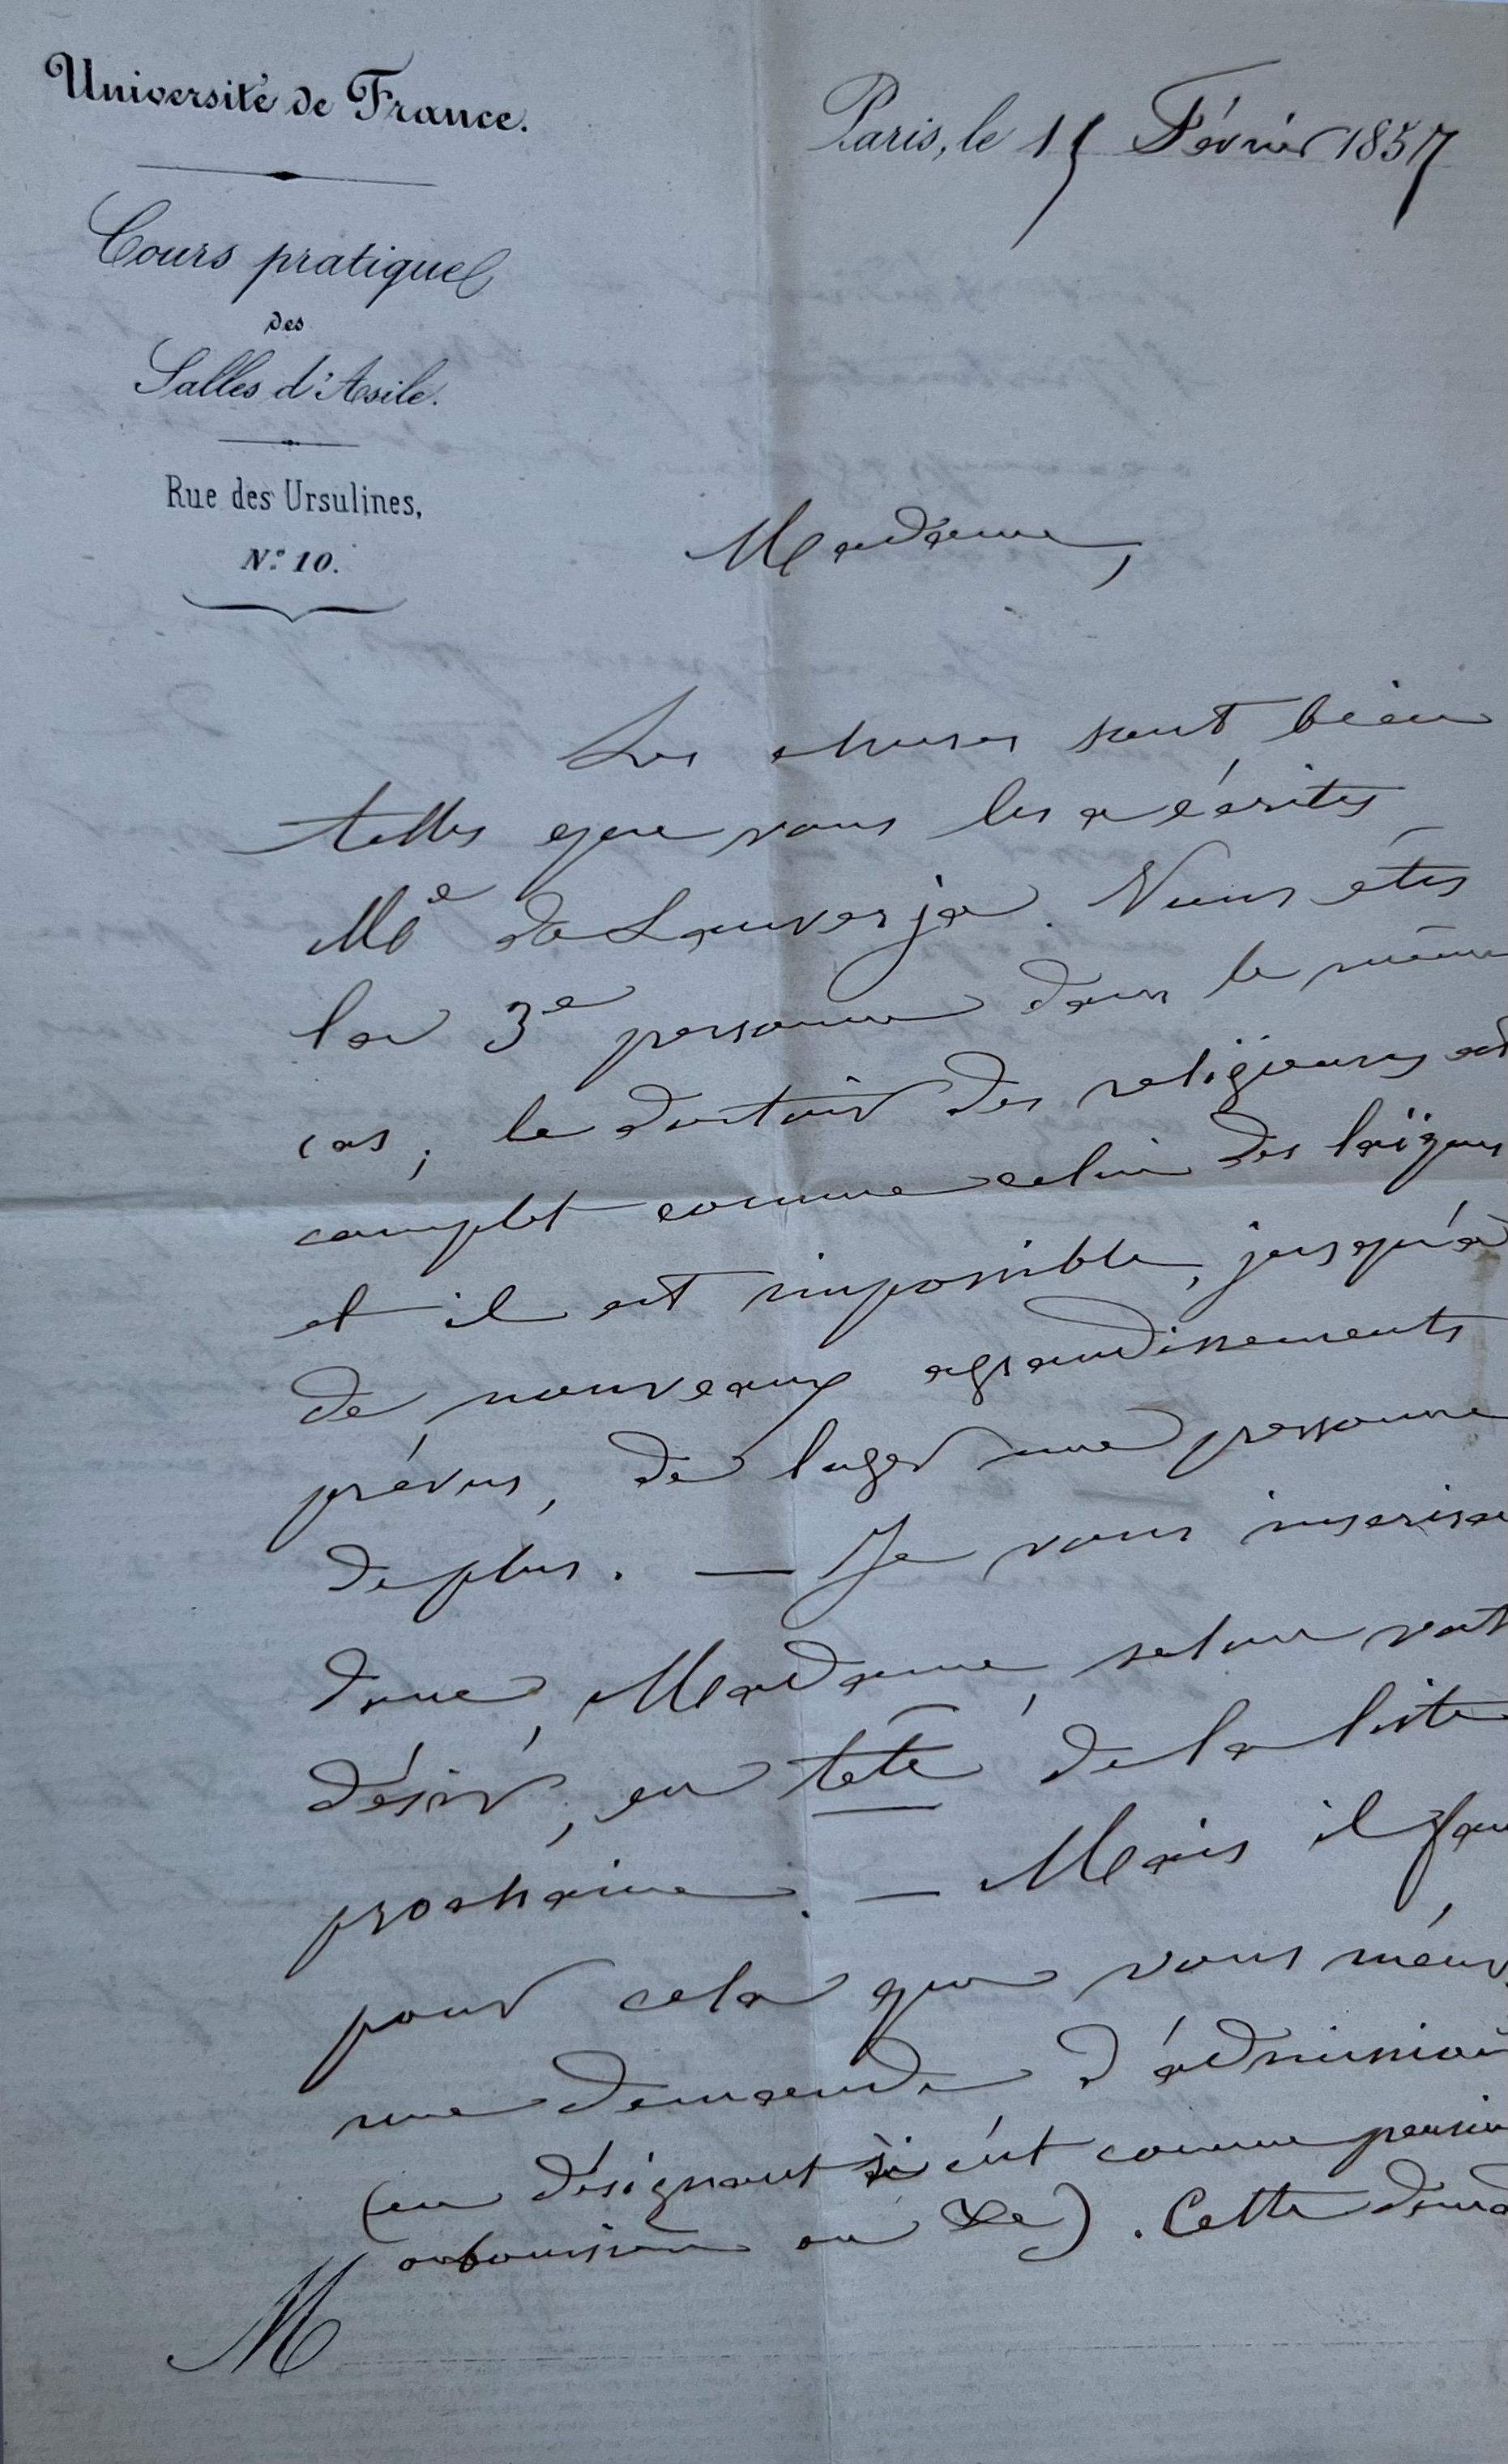 Université de France.
Paris, le 15 Février 1857
Cours pratique
des
Salles d'Asile.
Rue des Ursulines,
N° 10.
Madame,
Les choses sont bien
telles que vous les a écrites
Me de Lauverja. Vous êtes
la 3e personne dans le même
cas, le dortoir des religieuses est
complet comme celui des laïques
et il est impossible, jusqu'à
de nouveaux agrandissements
prévus, de loger une personne
de plus. — Je vous inscrise
donc, Madame, selon vot
désir, en tête de la liste
prochaine. — Mais il fau
pour cela que vous
une demande d'admission
(en désignant si c'est comme pension
ou boursière ou ). Cette
M